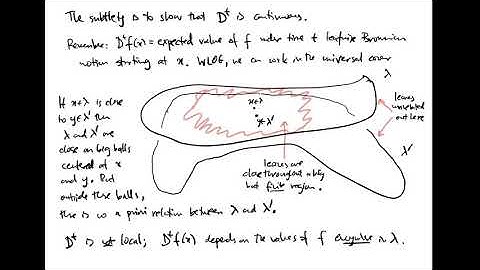 The subtlety is to show that Dᵗ is continuous.
Remember: Dᵗf(x) = expected value of f under time t leafwise Brownian
motion starting at x. WLOG, we can work in the universal cover
λ
If x∈λ is close
to y∈λ' then
λ and λ' are
close on big balls
centered at x
and y. But
outside these balls,
there is no a priori relation between λ and λ'.
x∈λ
y∈λ'
leaves
unrelated
out here
λ'
leaves are
close throughout a big
but finite region.
Dᵗ is not local; Dᵗf(x) depends on the values of f everywhere in λ.